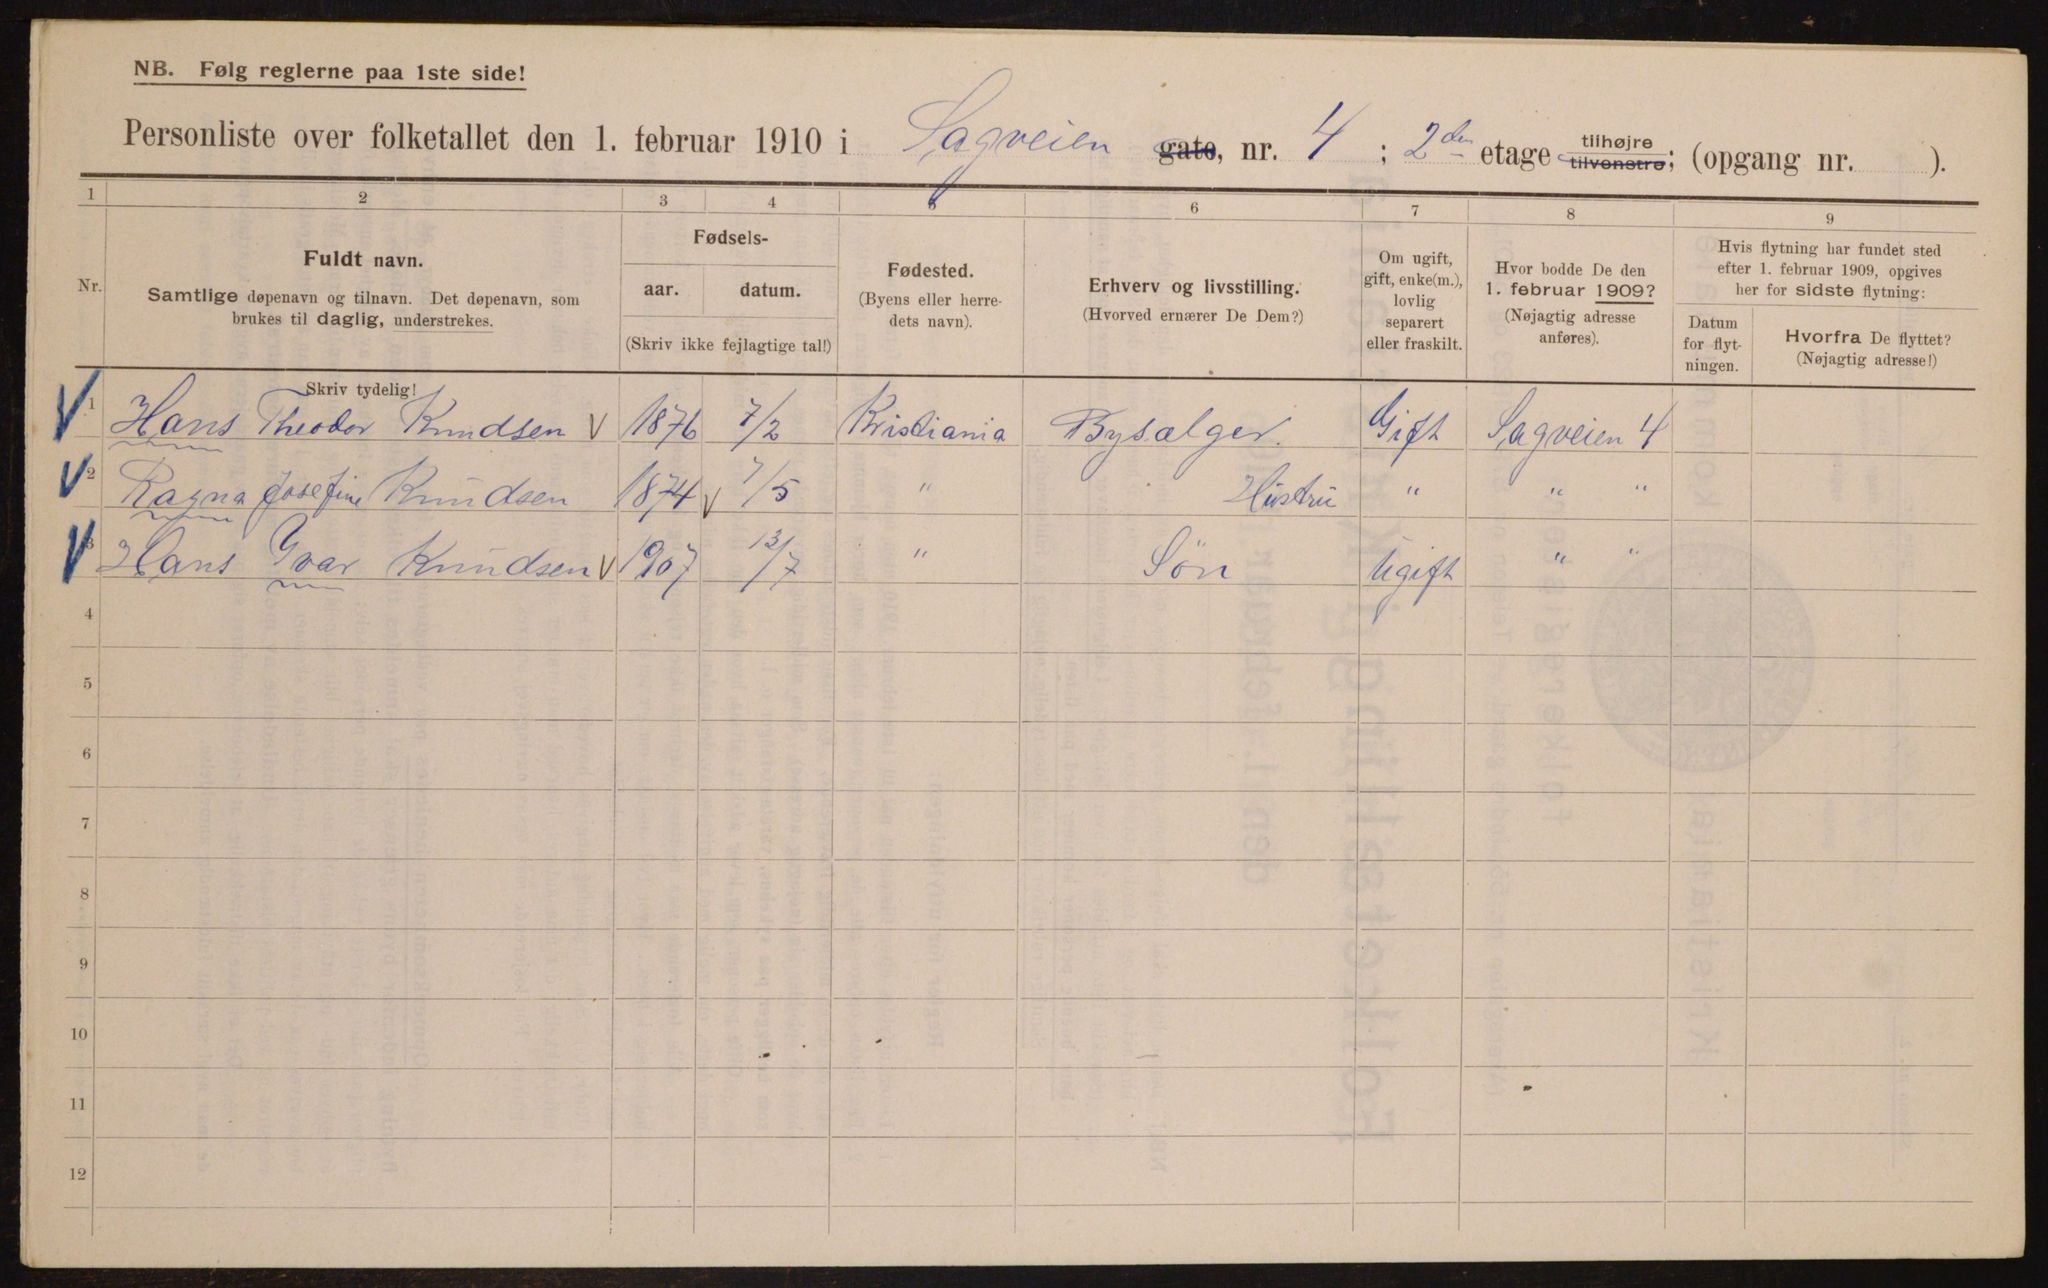 NB. Følg reglerne paa 1ste side!
Personliste over folketallet den 1. februar 1910 i Sagveien gate, nr. 4 ; 2den etage tilhøjre tilvenstre; (opgang nr. ).
1 2 3 4 5 6 7 8 9
Nr. Fuldt navn. Samtlige døpenavn og tilnavn. Det døpenavn, som brukes til daglig, understrekes. Skriv tydelig!
Fødsels- aar. datum. (Skriv ikke fejlagtige tal!)
Fødested. (Byens eller herredets navn).
Erhverv og livsstilling. (Hvorved ernærer De Dem?)
Om ugift, gift, enke(m.), lovlig separert eller fraskilt.
Hvor bodde De den 1. februar 1909? (Nøjagtig adresse anføres).
Hvis flytning har fundet sted efter 1. februar 1909, opgives her for sidste flytning:
Datum for flytningen. Hvorfra De flyttet? (Nøjagtig adresse!)
1 Hans Theodor Knudsen 1876 7/2 Kristiania Bysælger. Gift Sagveien 4
2 Ragna Josefine Knudsen 1874 7/5 " Hustru " " "
3 Hans Yvar Knudsen 1907 13/7 " Søn Ugift " "
4
5
6
7
8
9
10
11
12